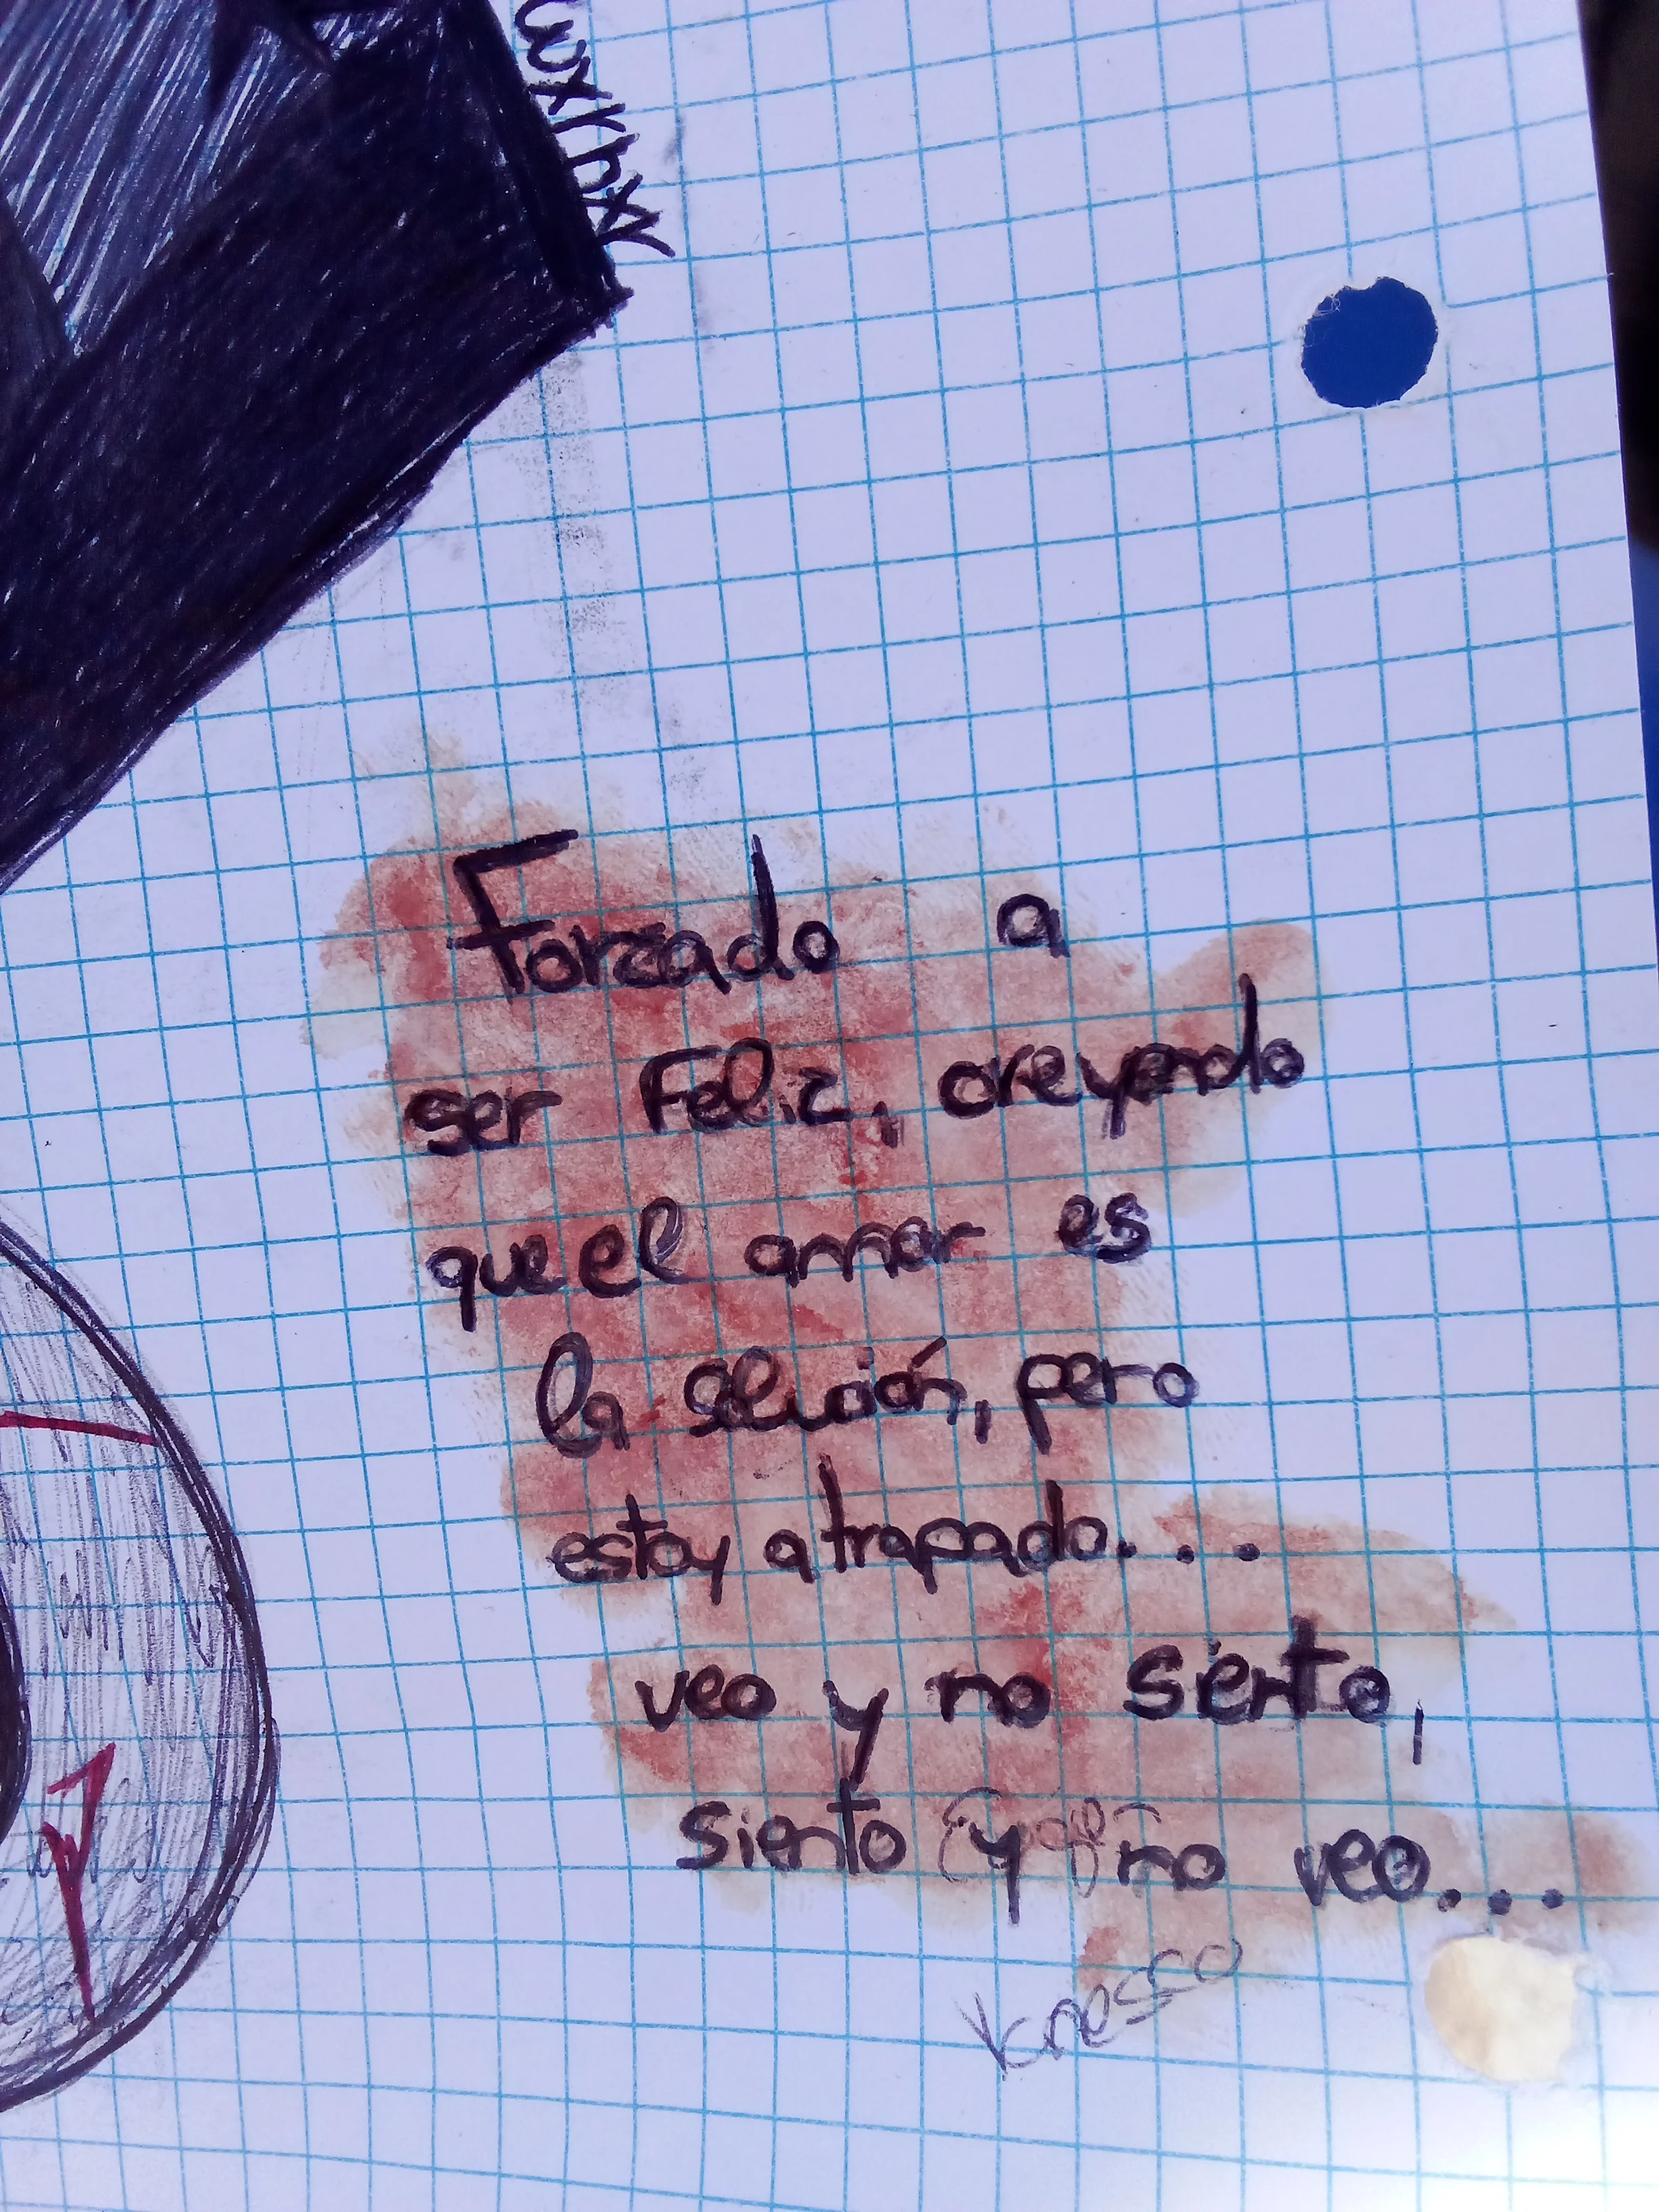 Forzado a
ser Feliz, creyendo
que el amor es
la solución, pero
estoy atrapado...
veo y no siento,
siento y no veo...